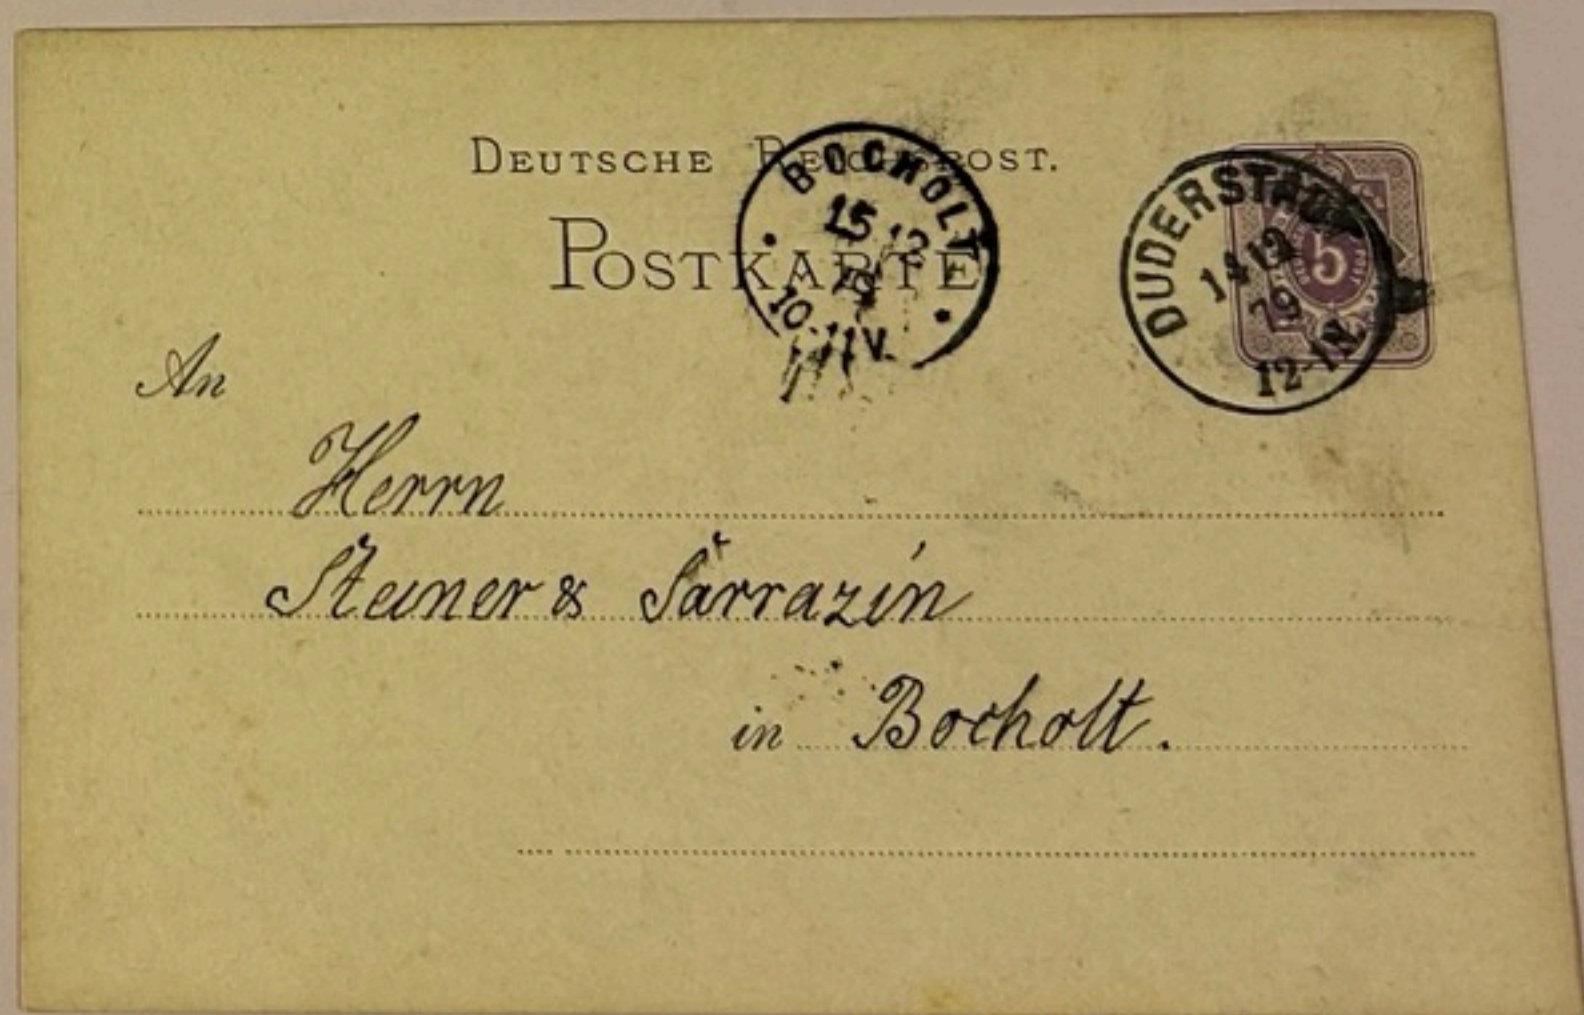 DEUTSCHE REICHSPOST.
POSTKARTE
BOCHOLT
15 12
79
10-11V.
DUDERSTADT
14 12
79
12-1N.
5
An
Herrn
Steiner & Sarrazin
in Bocholt.